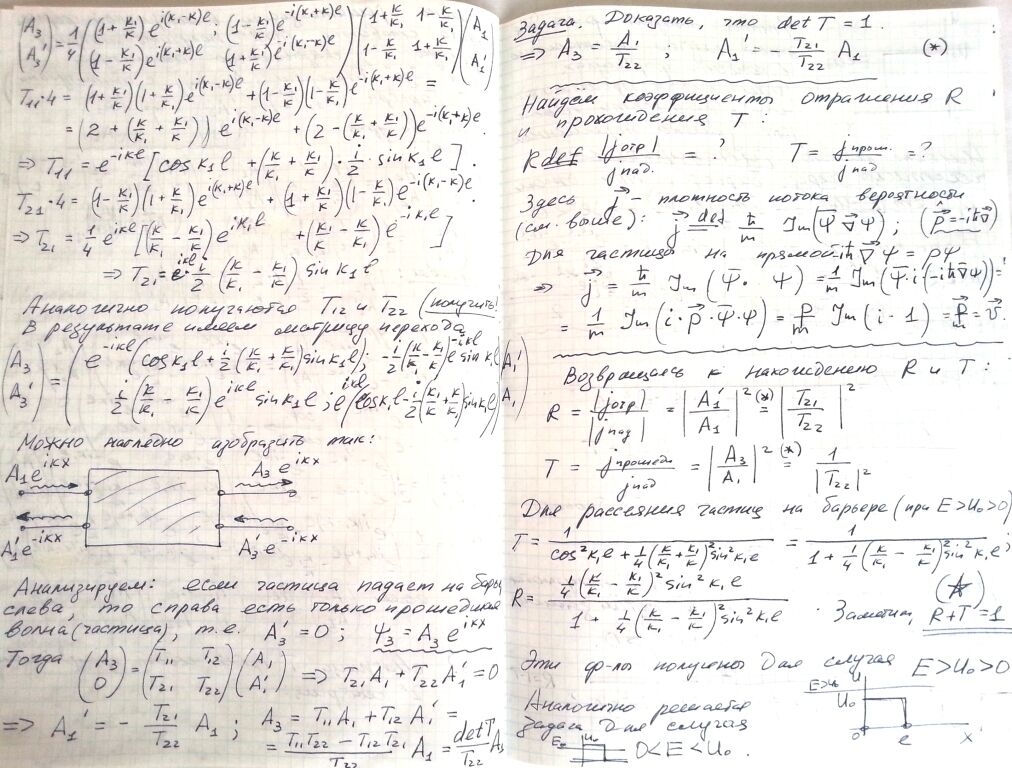 (A₃ A₃') = 1/4 ((1+k₁/k)e^{i(k₁-k)l} ; (1-k₁/k)e^{-i(k₁+k)l} (1-k₁/k)e^{i(k₁+k)l} (1+k₁/k)e^{-i(k₁-k)l}) (1+k/k₁ 1-k/k₁ 1-k/k₁ 1+k/k₁) (A₁ A₁')
T₁₁·4 = (1+k₁/k)(1+k/k₁)e^{i(k₁-k)l} + (1-k₁/k)(1-k/k₁)e^{-i(k₁+k)l} =
= (2+(k/k₁+k₁/k)) e^{i(k₁-k)l} + (2-(k/k₁+k₁/k))e^{-i(k₁+k)l}.
⇒ T₁₁ = e^{-ikl} [cos k₁l + (k/k₁+k₁/k)·i/2·sin k₁l].
T₂₁·4 = (1-k₁/k)(1+k/k₁)e^{i(k₁+k)l} + (1+k₁/k)(1-k/k₁)e^{-i(k₁-k)l}
⇒ T₂₁ = 1/4 e^{ikl}[(k/k₁-k₁/k)e^{ik₁l} + (k₁/k-k/k₁)e^{-ik₁l}]
⇒ T₂₁ = e^{ikl} i/2 (k/k₁-k₁/k) sin k₁l
Аналогично получаются T₁₂ и T₂₂ (получить!
В результате имеем матрицу перехода
(A₃ A₃') = (e^{-ikl}(cos k₁l + i/2(k/k₁+k₁/k)sin k₁l); -i/2(k/k₁-k₁/k)e^{-ikl} sin k₁l
i/2(k/k₁-k₁/k) e^{ikl} sin k₁l ; e^{ikl}(cos k₁l - i/2(k/k₁+k₁/k)sin k₁l)) (A₁ A₁')
Можно наглядно изобразить так:
A₁e^{ikx} A₃ e^{ikx}
A₁'e^{-ikx} A₃'e^{-ikx}
Анализируем: если частица падает на барьер
слева, то справа есть только прошедшая
волна (частица), т.е. A₃' = 0 ; ψ₃ = A₃ e^{ikx}
Тогда (A₃ 0) = (T₁₁ T₁₂ T₂₁ T₂₂)(A₁ A₁') ⇒ T₂₁A₁ + T₂₂A₁' = 0
⇒ A₁' = - T₂₁/T₂₂ A₁ ; A₃ = T₁₁A₁ + T₁₂A₁' =
= (T₁₁T₂₂ - T₁₂T₂₁)/T₂₂ A₁ = detT/T₂₂ A₁
Задача. Доказать, что det T = 1.
⇒ A₃ = A₁/T₂₂ ; A₁' = - T₂₁/T₂₂ A₁ (*)
Найдём коэффициенты отражения R
и прохождения T :
R def |jотр|/jпад = ? T = jпрош./jпад = ?
Здесь j⃗ - плотность потока вероятности
(см. выше): j⃗ def ħ/m Im(Ψ̄ ∇⃗Ψ) ; (p̂⃗ = -iħ∇⃗)
Для частицы на прямой -iħ∇⃗Ψ = pΨ
⇒ j⃗ = ħ/m Im(Ψ̄ · Ψ) = 1/m Im(Ψ̄·i(-iħ∇⃗Ψ)) =
= 1/m Im(i·p⃗·Ψ̄·Ψ) = p/m Im(i·1) = p⃗/m = v⃗.
Возвращаясь к нахождению R и T :
R = |jотр|/|jпад| = |A₁'/A₁|² (*)= |T₂₁/T₂₂|²
T = jпрошедш/jпад = |A₃/A₁|² (*)= 1/|T₂₂|²
Для рассеяния частиц на барьере (при E>U₀>0)
T = 1/(cos²k₁l + 1/4(k/k₁+k₁/k)²sin²k₁l) = 1/(1+1/4(k/k₁-k₁/k)²sin²k₁l) ;
R = 1/4(k/k₁-k₁/k)² sin²k₁l/(1+1/4(k/k₁-k₁/k)²sin²k₁l) . Заметим, R+T=1 (☆)
Эти ф-лы получены для случая E>U₀>0
Аналогично решается
задача для случая
E U₀ 0<E<U₀ .
U E>U₀ U₀ 0 l x